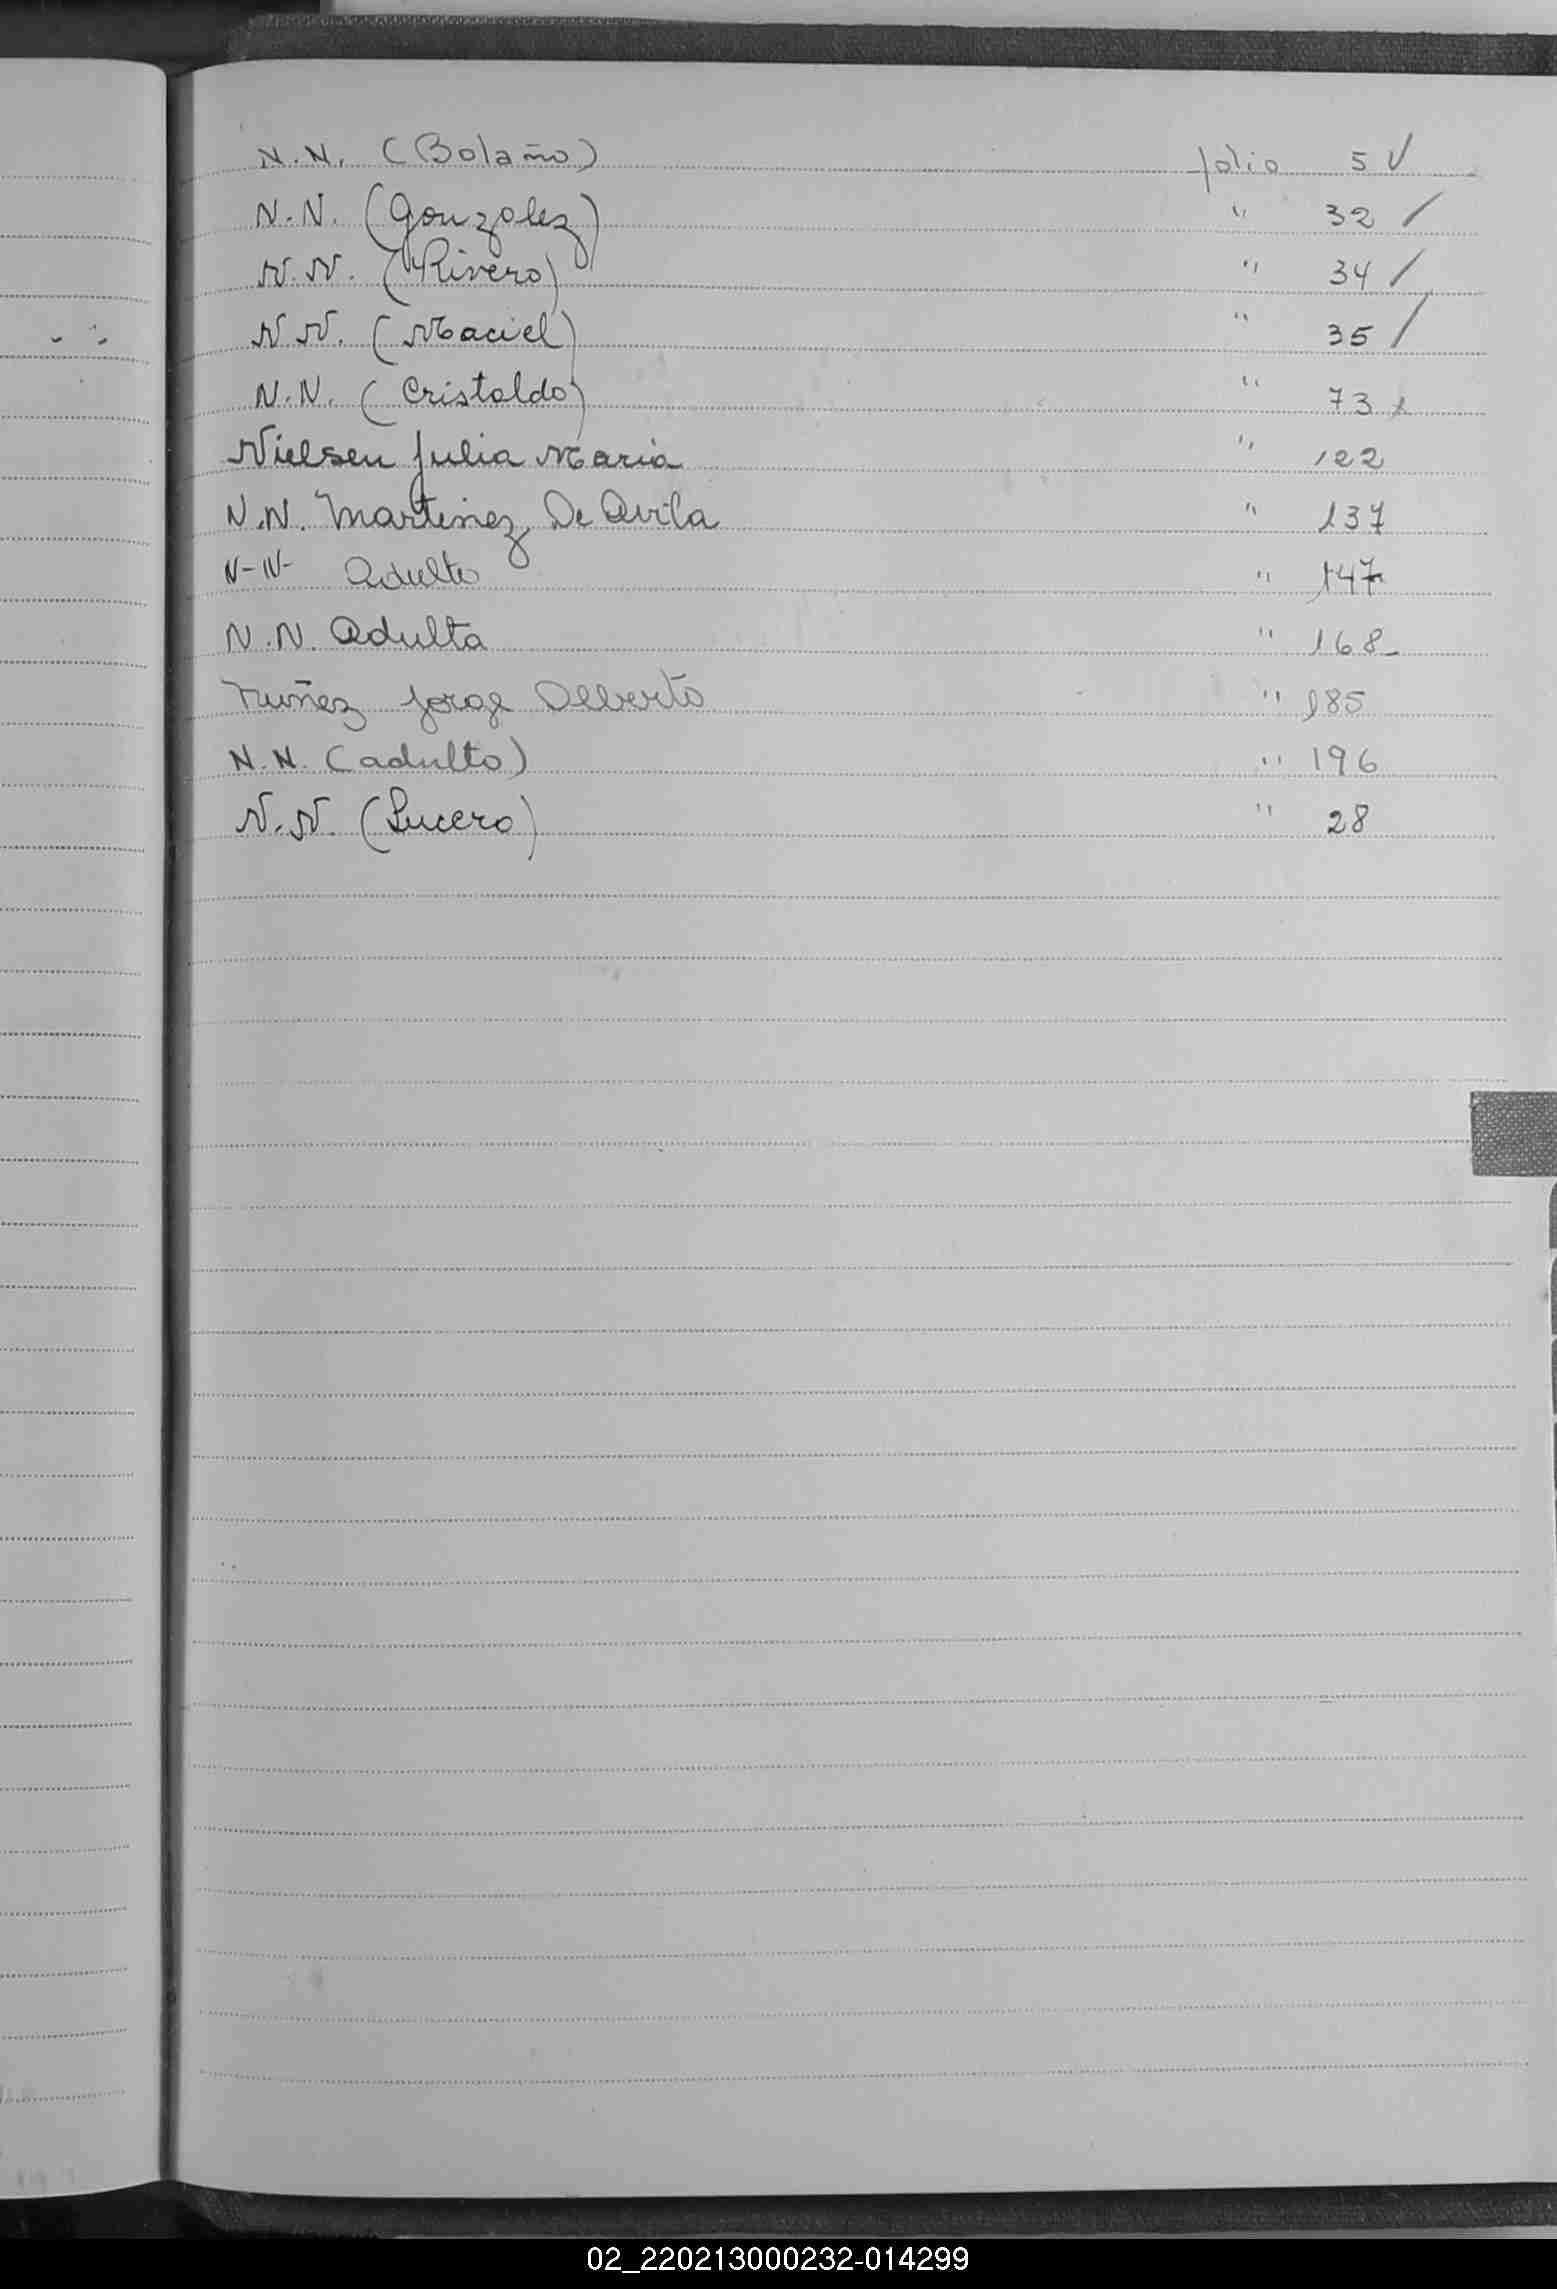 N.N. (Bolaño) folio 5 ✓
N.N. (Gonzalez) " 32 /
N.N. (Rivero) " 34 /
N.N. (Maciel) " 35 /
N.N. (Cristaldo) " 73
Nielsen Julia Maria " 122
N.N. Martinez De Avila " 137
N-N- Adulto " 147
N.N. Adulta " 168-
Nuñez Jorge Alberto " 185
N.N. (adulto) " 196
N.N. (Lucero) " 28
02_220213000232-014299